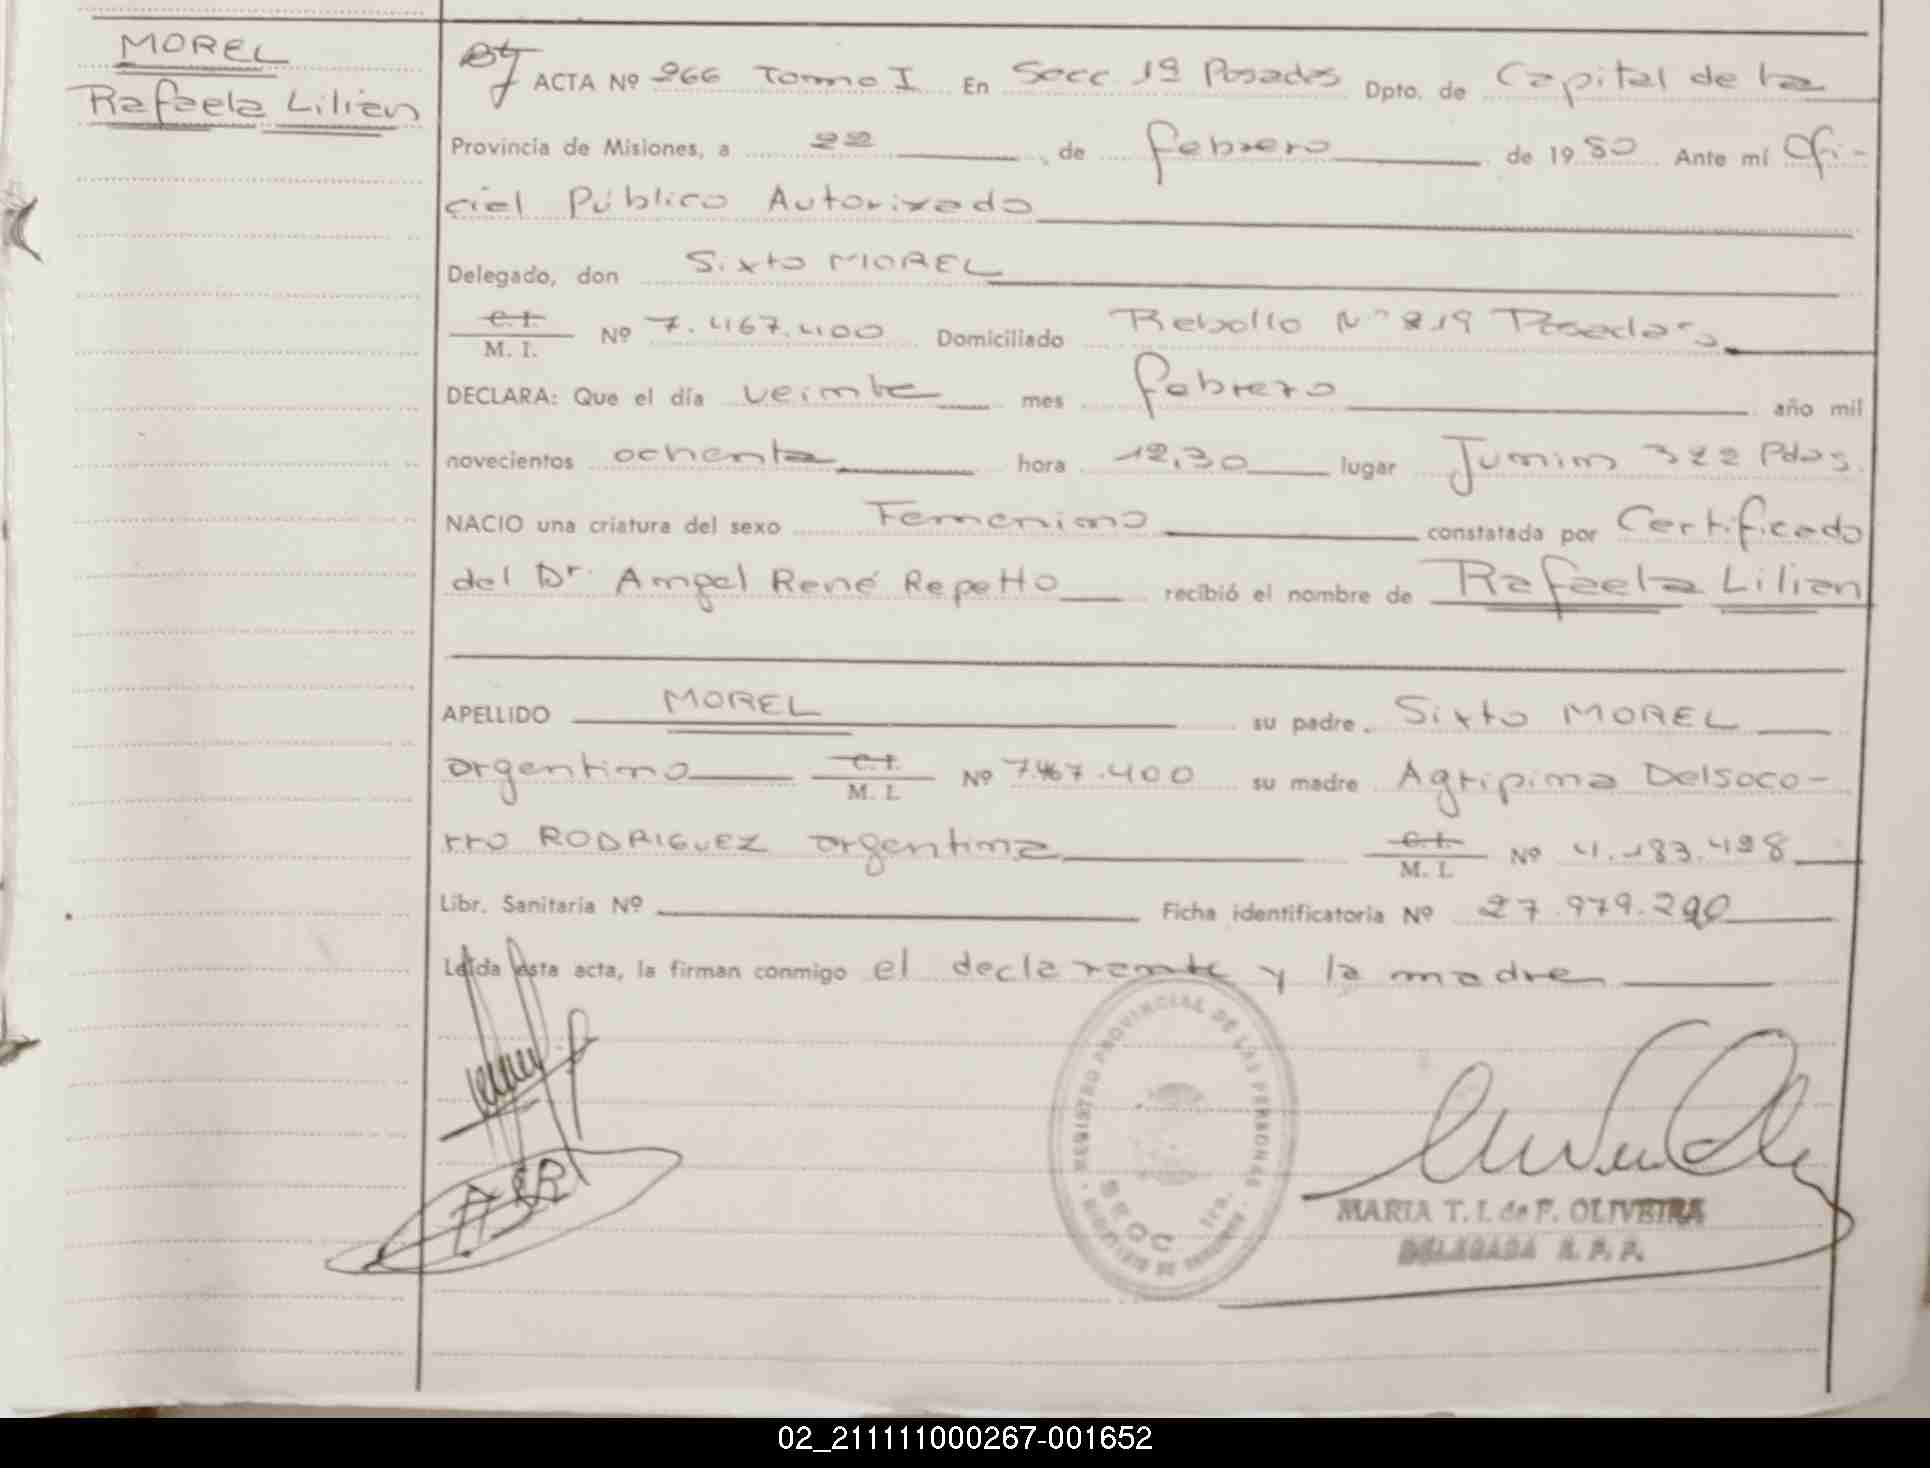 MOREL
Rafaela Lilian
ACTA Nº 266 Tomo I En Secc 1º Posadas Dpto. de Capital de la
Provincia de Misiones, a 22 de febrero de 1980 Ante mí Ofi-
cial Público Autorizado
Delegado, don Sixto MOREL
C. I.
M. I. Nº 7.467.400 Domiciliado Rebollo Nº 219 Posadas
DECLARA: Que el día veinte mes febrero año mil
novecientos ochenta hora 12,30 lugar Junin 322 Pdas.
NACIO una criatura del sexo Femenino constatada por Certificado
del Dr. Angel René Repetto recibió el nombre de Rafaela Lilian
APELLIDO MOREL su padre Sixto MOREL
argentino C. I. M. I. Nº 7.467.400 su madre Agripina Delsoco-
rro RODRIGUEZ argentina C. I. M. I. Nº 4.183.498
Libr. Sanitaria Nº Ficha identificatoria Nº 27.979.290
Leída ésta acta, la firman conmigo el declarante y la madre
REGISTRO PROVINCIAL DE LAS PERSONAS
SECC 1ra.
MARIA T. I. de F. OLIVEIRA
DELEGADA R. P. P.
02_211111000267-001652